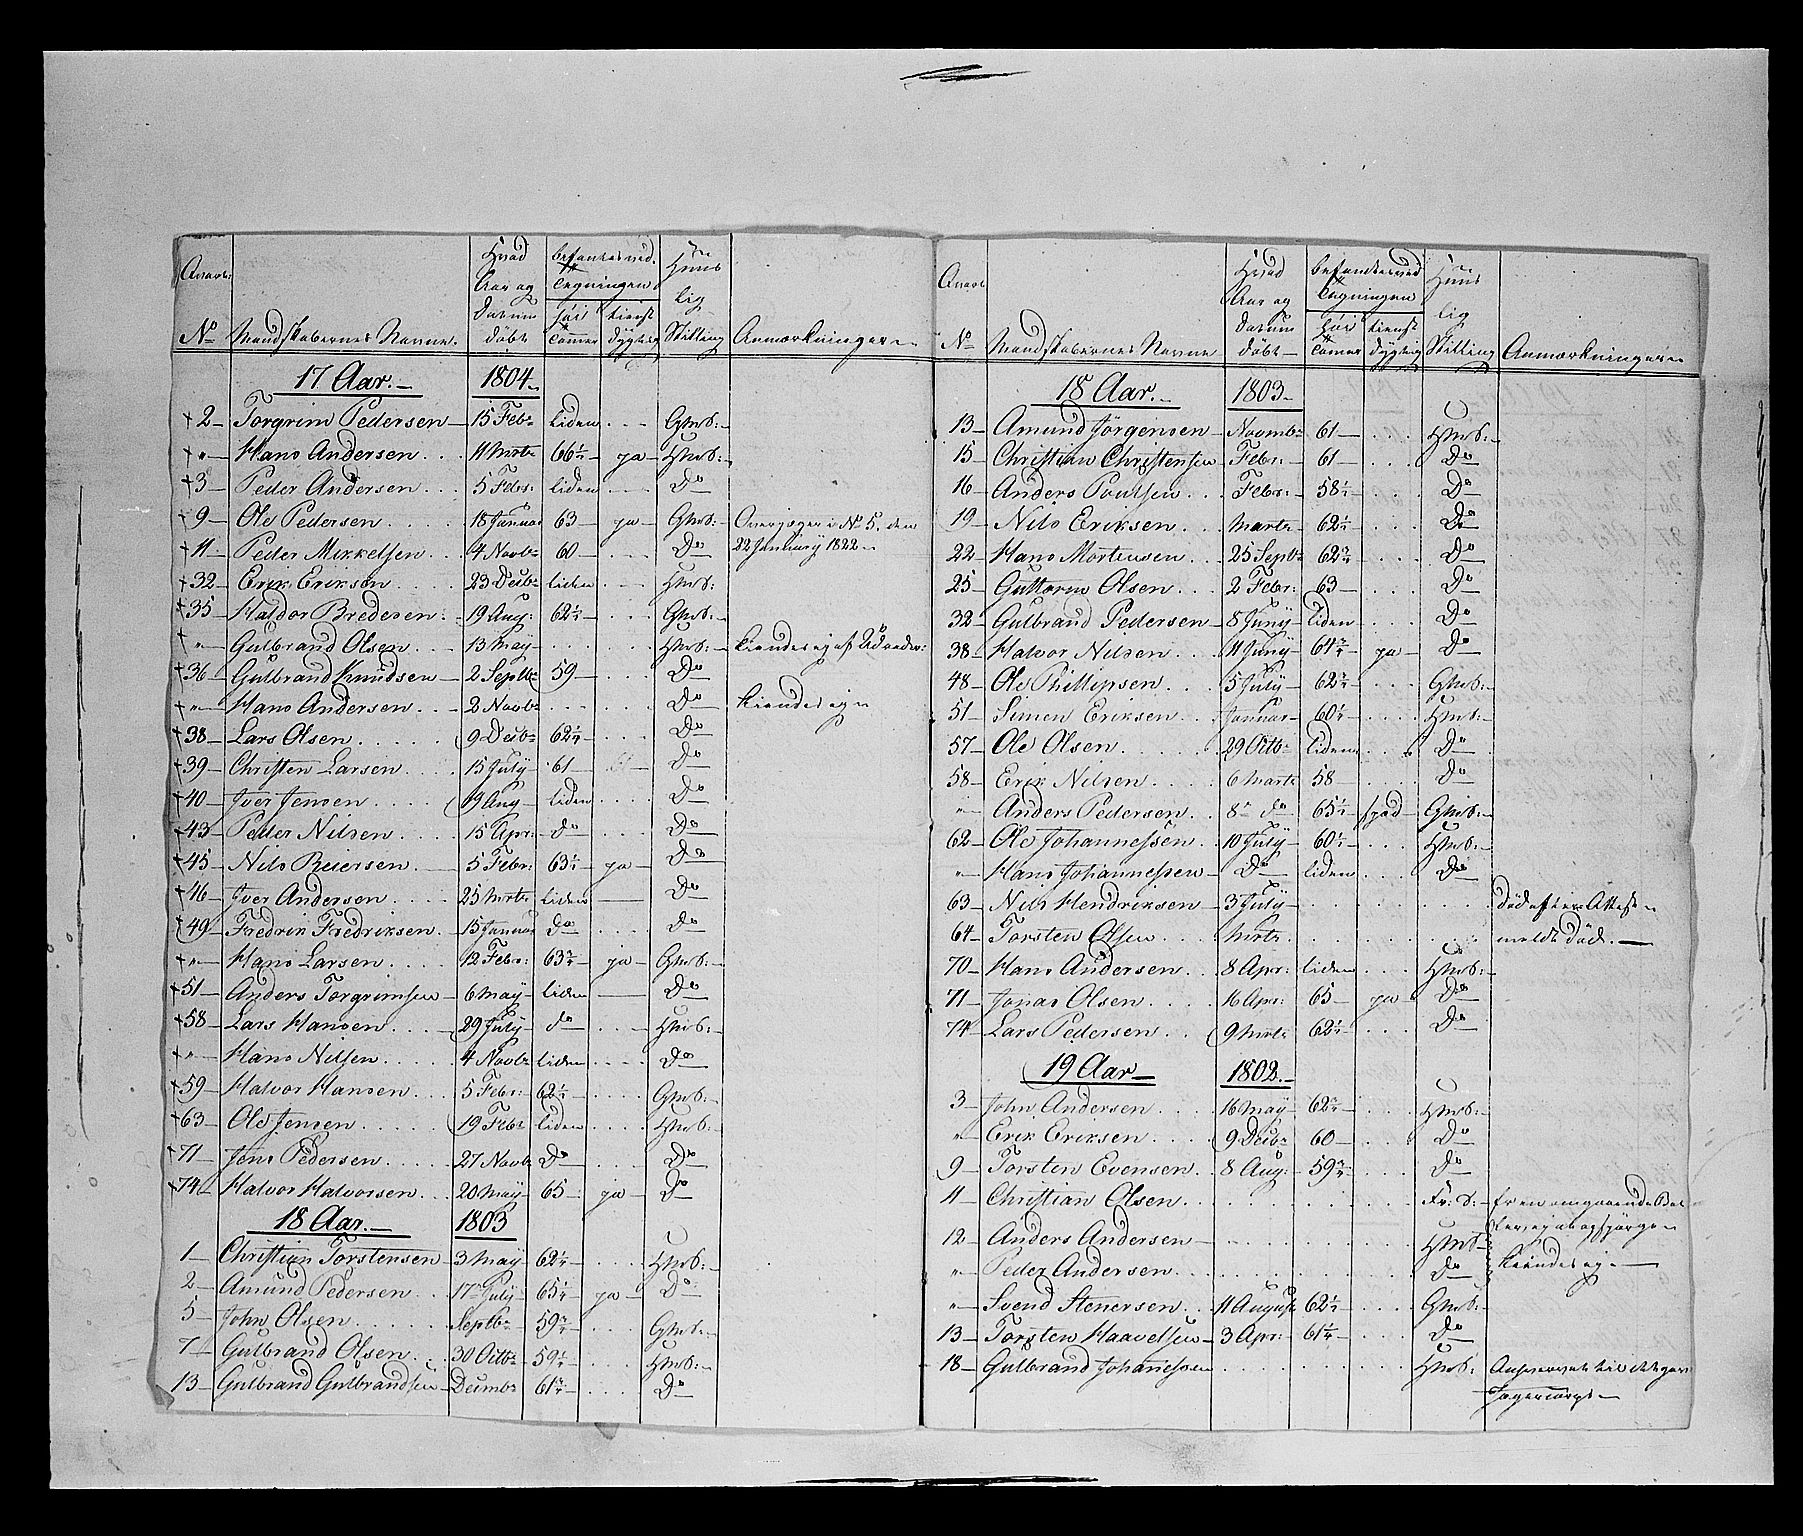 No Mandskabernes Navne. Hvad Aar og Datum døbt befantes ved Tegningen høi Tommer tienst dygtig Huus lig Stilling Anmærkninger
17 Aar. 1804
2 Torgrim Pedersen 15 Febr liden Gmd:
" Hans Andersen 11 Mrts 66½ ja Hmd:
3 Peder Andersen 5 Febr: liden Do
9 Ole Pedersen 18 Januar 63 ja Gmd: Overjæger i No 5. den
22 January 1822
11 Peder Mikkelsen 4 Novbr 60 Do
32 Erik Eriksen 23 Decbr liden Hmd:
35 Haldor Bredesen 19 Aug: Gmd:
" Gulbrand Olsen 13 May Hmd: kiendes ej af
36 Gulbrand Knudsen 2 Septbr 59 Do
" Hans Andersen 2 Novbr Do kiendes ej
38 Lars Olsen 9 Decbr Do
39 Christen Larsen 15 July 61 Do
40 Iver Jensen 19 Aug liden Do
43 Peder Nilsen 15 Apr: do Do
45 Nils Reiersen 5 Febr: ja Do
46 Iver Andersen 25 Mrts liden Do
49 Fredrik Fredriksen 15 Januar do Do
" Hans Larsen 12 Febr: ja Gmd:
51 Anders Torgrimsen 6 May liden Do
58 Lars Hansen 29 July do Hmd:
" Hans Nilsen 4 Novbr liden Do
59 Halvor Hansen 5 Febr: Gmd:
63 Ole Jensen 19 Febr liden Hmd:
71 Jens Pedersen 27 Novbr Do Do
74 Halvor Halvorsen 20 May 65 ja Do
18 Aar. 1803
1 Christian Torstensen 3 May Hmd:
2 Amund Pedersen 17 July ja Do
5 John Olsen Septbr Gmd:
7 Gulbrand Olsen 30 Octbr Hmd:
13 Gulbrand Gulbrandsen Decmbr Do
No Mandskabernes Navne Hvad Aar og Datum døbt befantes ved Tegningen høi Tommer tienst dygtig Huus lig Stilling Anmærkninger
18 Aar. 1803
13 Amund Jørgensen Novmbr 61 Hmd:
15 Christian Christensen Febr: 61 Do
16 Anders Poulsen Febr: Do
19 Nils Eriksen Marts Do
22 Hans Mortensen 25 Septbr Do
25 Guttorm Olsen 2 Febr: 63 Do
32 Gulbrand Pedersen 8 Juny liden Do
38 Halvor Nilsen 11 Juny ja Do
48 Ole Phillipsen 5 July Gmd:
51 Simen Eriksen Januar Hmd:
57 Ole Olsen 29 Octbr liden Do
58 Erik Nilsen 6 Marts 58 Do
" Anders Pedersen 8 do Gmd:
62 Ole Johannessen 10 July Hmd:
" Hans Johannessen Do liden Do
63 Nils Hendriksen 3 July Død efter Attest
64 Torsten Olsen Mrts meldt død.
70 Hans Andersen 8 Apr: liden Hmd:
71 Jonas Olsen 16 Apr: 65 ja Do
74 Lars Pedersen 9 Mrts Do
19 Aar 1802.
3 John Andersen 16 May Hmd:
" Erik Eriksen 9 Decbr 60 Do
9 Torsten Evensen 8 Aug: Do
11 Christian Olsen er en omgaaende
12 Anders Andersen Hmd
" Peder Andersen Do kiendes ej
" Svend Stenersen 11 August Gmd:
13 Torsten Haavelsen 3 Apr: Do
18 Gulbrand Johanessen Hmd:
Jægercorps